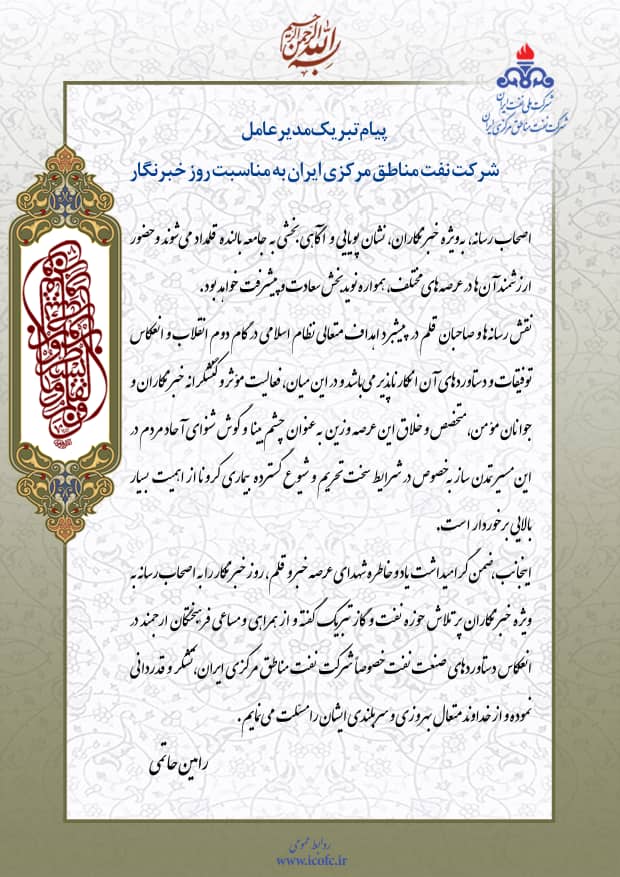 بسم الله الرحمن الرحیم
شرکت ملی نفت ایران
شرکت نفت مناطق مرکزی ایران
پیام تبریک مدیرعامل
شرکت نفت مناطق مرکزی ایران به مناسبت روز خبرنگار
اصحاب رسانه، به‌ویژه خبرنگاران، نشان پویایی و آگاهی بخشی به جامعه بالنده قلمداد می‌شوند و حضور
ارزشمند آن‌ها در عرصه‌های مختلف، همواره نویدبخش سعادت و پیشرفت خواهد بود.
نقش رسانه‌ها و صاحبان قلم در پیشبرد اهداف متعالی نظام اسلامی در گام دوم انقلاب و انعکاس
توفیقات و دستاوردهای آن انکارناپذیر می‌باشد و در این میان، فعالیت مؤثر و کنشگرانه خبرنگاران و
جوانان مؤمن، متخصص و خلاق این عرصه وزین به عنوان چشم بینا و گوش شنوای آحاد مردم در
این مسیر تمدن ساز به‌خصوص در شرایط سخت تحریم و شیوع گسترده بیماری کرونا از اهمیت بسیار
بالایی برخوردار است.
اینجانب، ضمن گرامیداشت یاد و خاطره شهدای عرصه خبر و قلم، روز خبرنگار را به اصحاب رسانه به
ویژه خبرنگاران پرتلاش حوزه نفت و گاز تبریک گفته و از همراهی و مساعی فرهیختگان ارجمند در
انعکاس دستاوردهای صنعت نفت خصوصاً شرکت نفت مناطق مرکزی ایران، تشکر و قدردانی
نموده و از خداوند متعال بهروزی و سربلندی ایشان را مسئلت می‌نمایم.
رامین حاتمی
روابط عمومی
www.icofc.ir